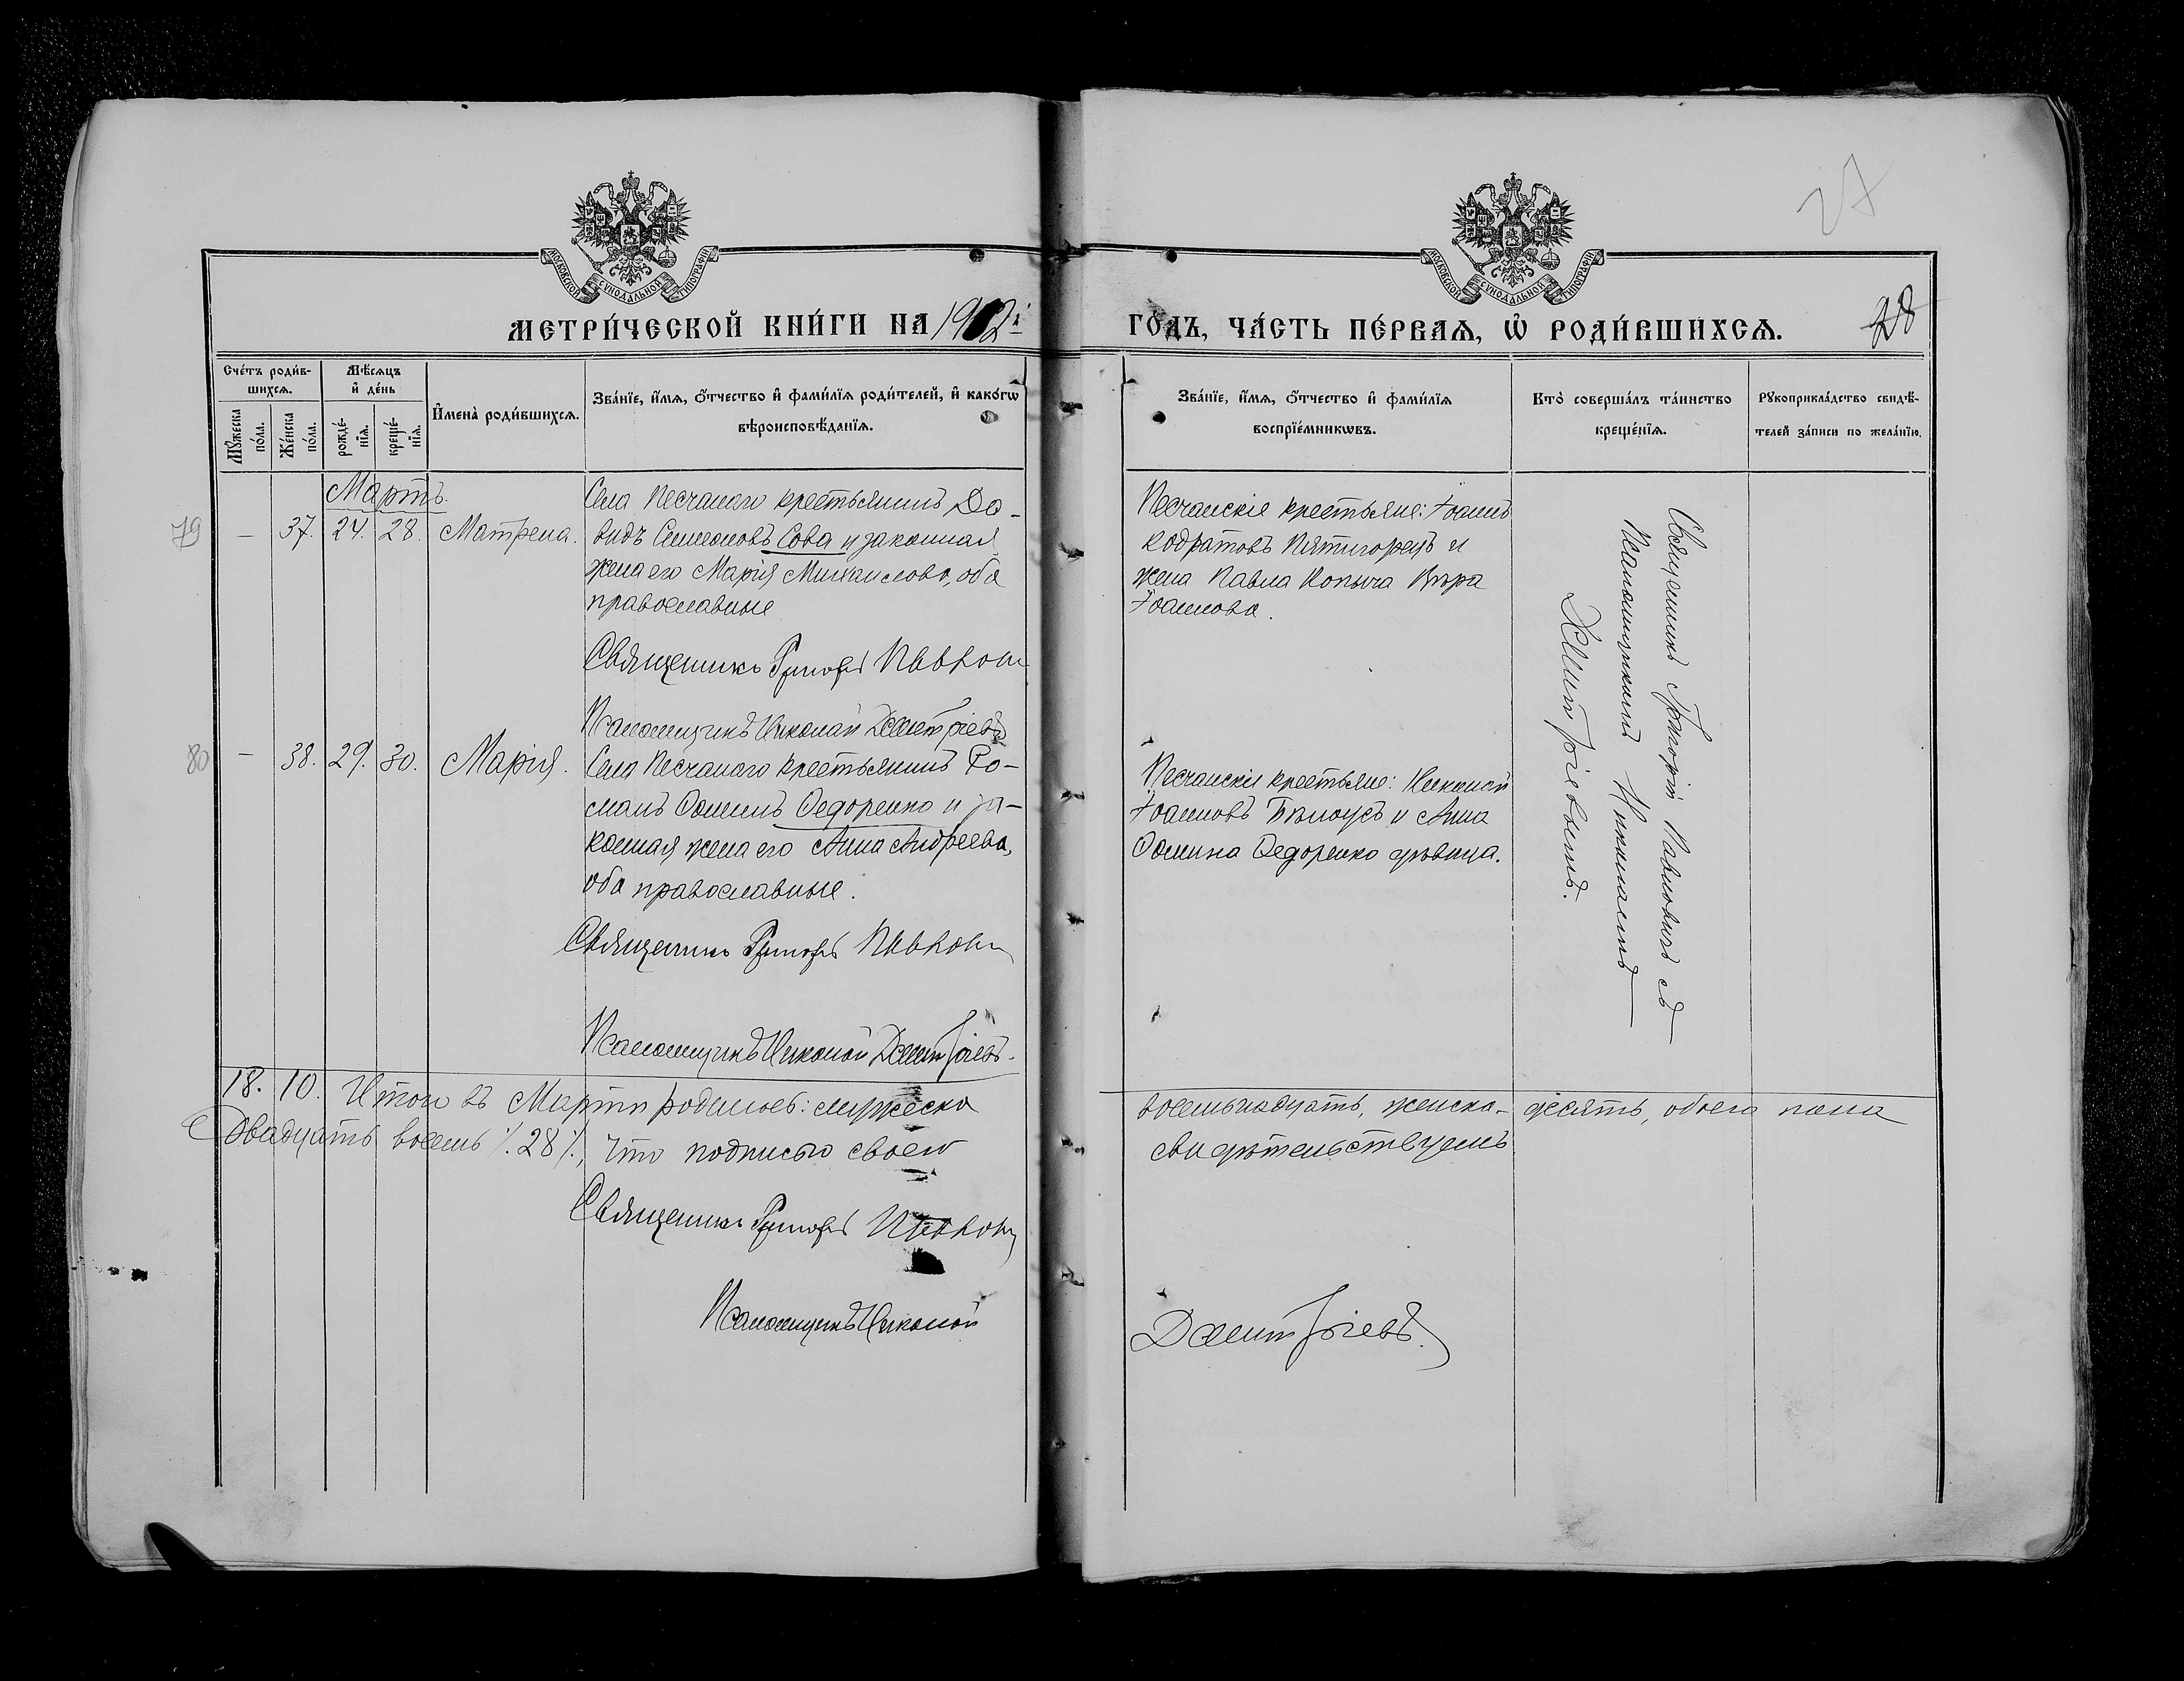 27
МОСКОВСКОЙ СѴНОДАЛЬНОЙ ТИПОГРАФІИ
МОСКОВСКОЙ СѴНОДАЛЬНОЙ ТИПОГРАФІИ
МЕТРИ́ЧЕСКОЙ КНИ́ГИ НА 1902й ГОДЪ, ЧА́СТЬ ПЕ́РВАѦ, Ѡ҆ РОДИ́ВШИХСѦ. 28
Сче́тъ роди́в-
шихсѧ.
Мѣ́сѧцъ
и҆ де́нь
Мꙋ́жеска
по́ла.
Же́нска
по́ла.
рожде́-
нїѧ.
креще́-
нїѧ.
И҆мена̀ роди́вшихсѧ.
Зва́нїе, и҆́мѧ, ѻ҆́тчество и҆ фами́лїѧ роди́телей, и҆ како́гѡ
вѣроисповѣ́данїѧ.
Зва́нїе, и҆́мѧ, ѻ҆́тчество и҆ фами́лїѧ
воспрїе́мникѡвъ.
Кто̀ соверша́лъ та́инство
креще́нїѧ.
Рꙋкоприкла́дство свидѣ́-
телей за́писи по жела́нїю.
Мартъ.
79 — 37. 24. 28. Матрена.
Села Песчаного крестьянинъ Да-
видъ Симоновъ Сова и законная
жена его Марія Михаилова, оба
православные
Священникъ Григорій
Псаломщикъ Николай Дмитріевъ
Песчанскіе крестьяне: Іоаннъ
Кодратовъ Пятигорецъ и
жена Павла Копыча Вѣра
Іоаннова.
Священникъ Григорій Павловичъ съ
Псаломщикомъ Николаемъ
Дмитріевымъ.
80 — 38. 29. 30. Марія.
Села Песчаного крестьянинъ Ро-
манъ Ѳоминъ Ѳедоренко и за-
конная жена его Анна Андреева,
оба православные.
Священникъ Григорій
Псаломщикъ Николай Дмитріевъ.
Песчанскіе крестьяне: Николай
Іоанновъ Бѣлоусъ и Анна
Ѳомина Ѳедоренко дѣвица.
18. 10. Итого въ Мартѣ родилось: мужеска восемьнадцать, женска- десять, обоего пола
двадцать восемь ٪ 28 ٪, что подписью своею свидѣтельствуемъ
Священникъ Григорій
Псаломщикъ Николай Дмитріевъ.